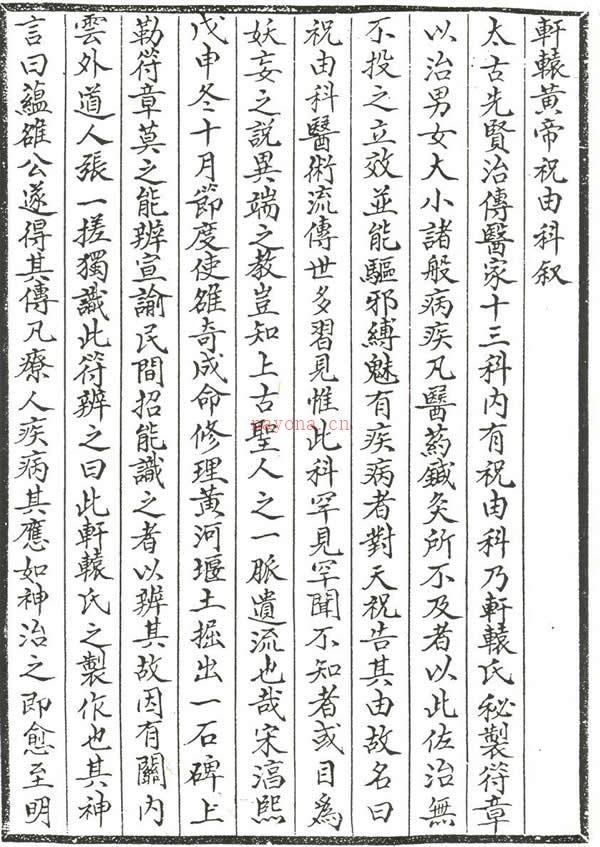 軒轅黃帝祝由科叙
太古先賢治傳醫家十三科内有祝由科乃軒轅氏秘製符章
以治男女大小諸般病疾凡醫藥鍼灸所不及者以此佐治無
不投之立效並能驅邪縛魅有疾病者對天祝告其由故名曰
祝由科醫術流傳世多習見惟此科罕見罕聞不知者或目為
妖妄之説異端之教豈知上古聖人之一脈遺流也哉宋淳熙
戊申冬十月節度使雒奇成命修理黃河堰土掘出一石碑上
勒符章莫之能辨宣諭民間招能識之者以辨其故因有關内
雲外道人張一搓獨識此符辨之曰此軒轅氏之製作也其神
言曰蘊雒公遂得其傳凡療人疾病其應如神治之即愈至明
nayona.cn